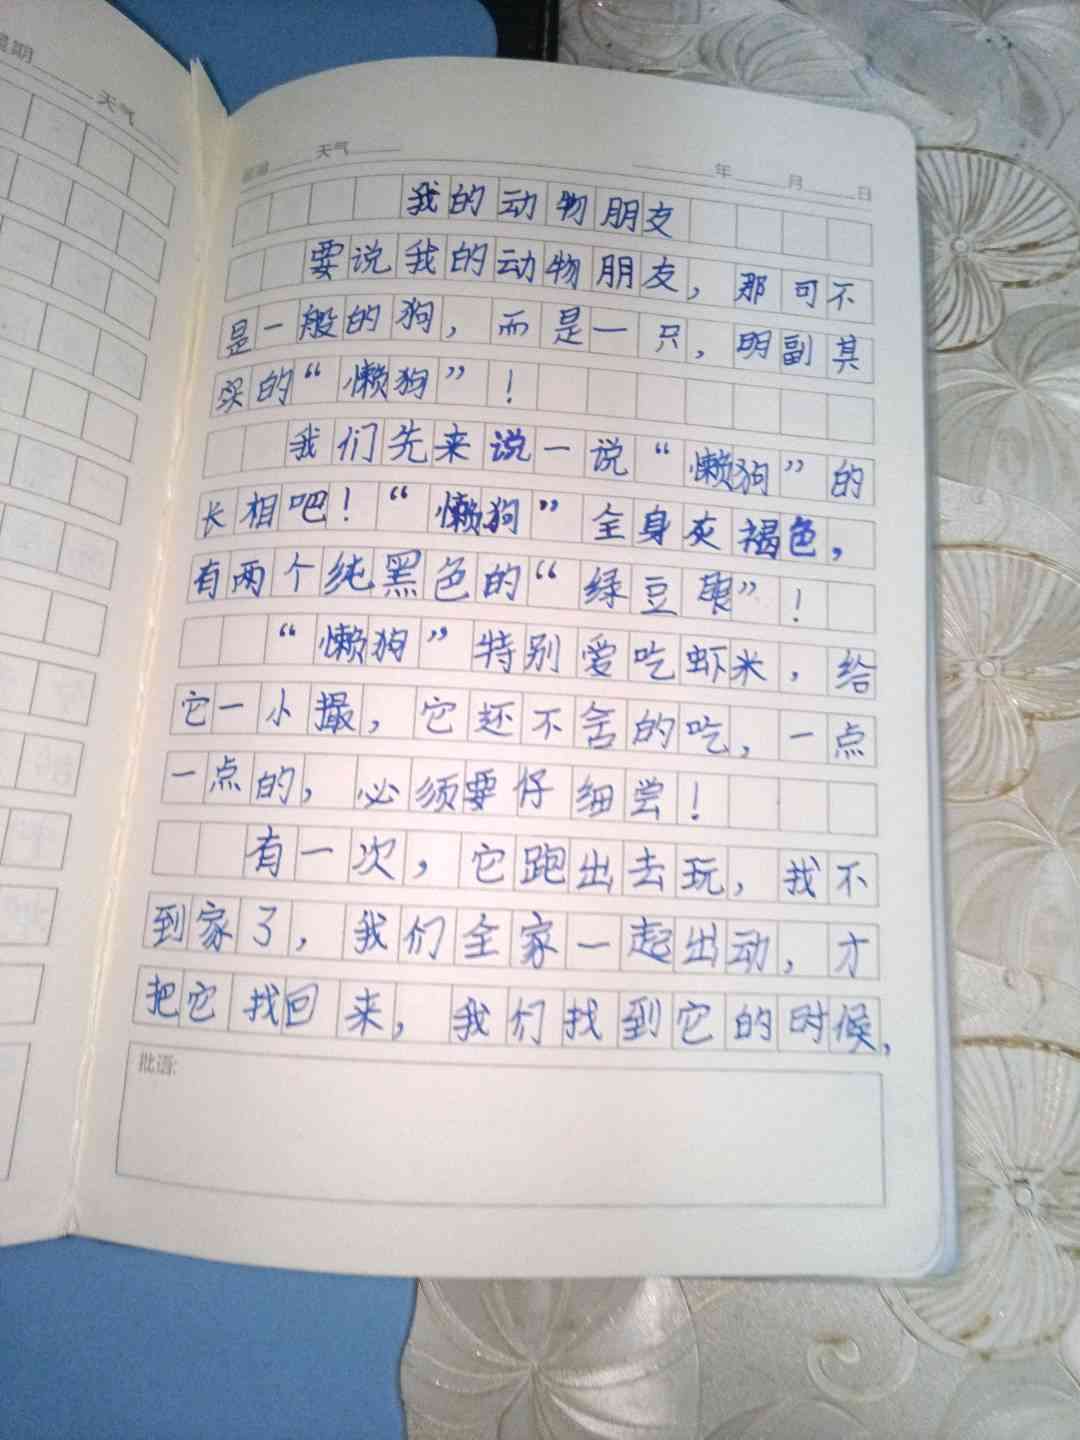 星期 天气
星期 天气 年 月 日
我的动物朋友
要说我的动物朋友，那可不
是一般的狗，而是一只，明副其
实的“懒狗”！
我们先来说一说“懒狗”的
长相吧！“懒狗”全身灰褐色，
有两个纯黑色的“绿豆眼”！
“懒狗”特别爱吃虾米，给
它一小撮，它还不舍的吃，一点
一点的，必须要仔细尝！
有一次，它跑出去玩，找不
到家了，我们全家一起出动，才
把它找回来，我们找到它的时候，
批语: